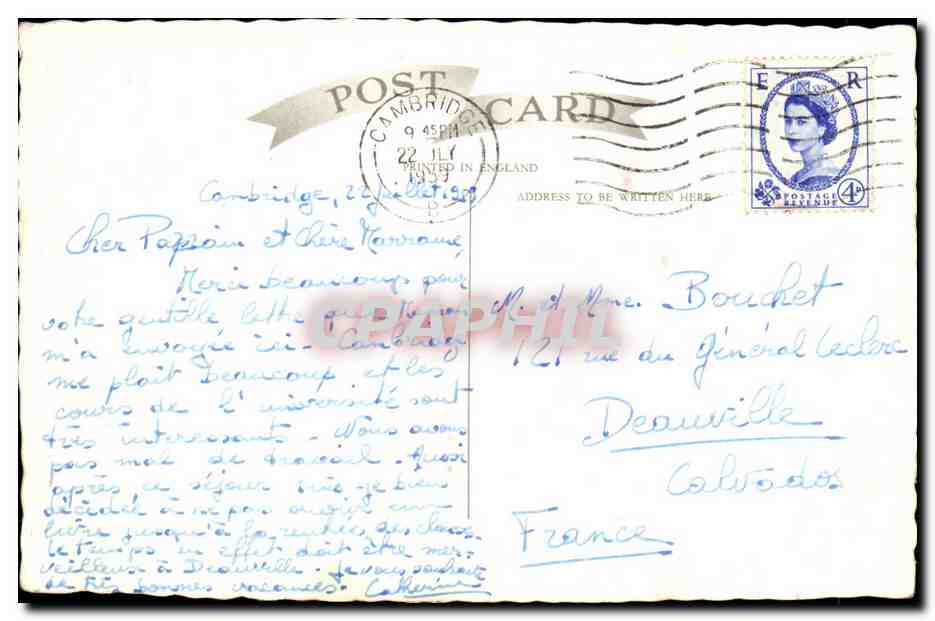 POST CARD
CAMBRIDGE
9 45 PM
22 JLY
1959
B
E R
POSTAGE
REVENUE
4D
PRINTED IN ENGLAND
ADDRESS TO BE WRITTEN HERE
Cambridge, 22 juillet 1959
Cher Parrain et chère Marraine
Merci beaucoup pour
votre gentille lettre que
m'a envoyée ici - Cambridge
me plait beaucoup et les
cours de l'université sont
très interessants - Nous avons
pas mal de travail. Aussi
après ce séjour suis-je bien
décidée à ne pas ouvrir un
livre jusqu'à la rentrée des classes.
Le temps en effet doit être mer-
veilleux à Deauville. Je vous souhaite
de très bonnes vacances. Catherine
M. et Mme. Bouchet
121 rue du Général Leclerc
Deauville
Calvados
France
CPAPHIL